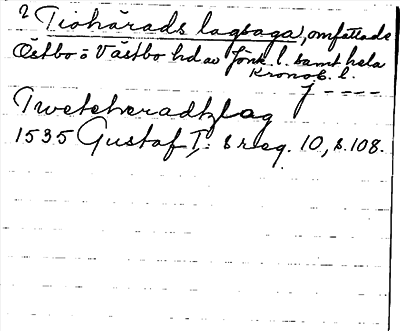 2 Tiohärads lagsaga, omfattade
Östbo o Västbo hd av Jönk. l. samt hela
Kronob. l.
J - - - -
Twetcheradtzlag
1535 Gustaf I: s reg. 10, s. 108.